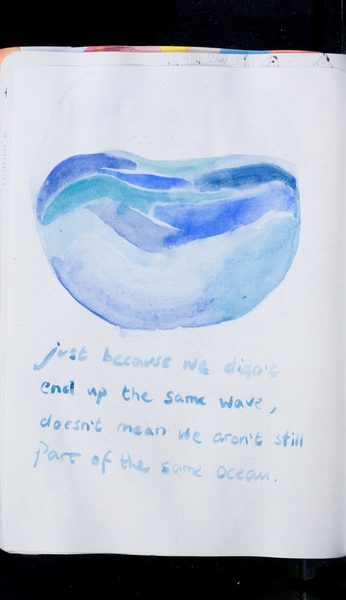 just because we didn't
end up the same wave,
doesn't mean we aren't still
Part of the same ocean.